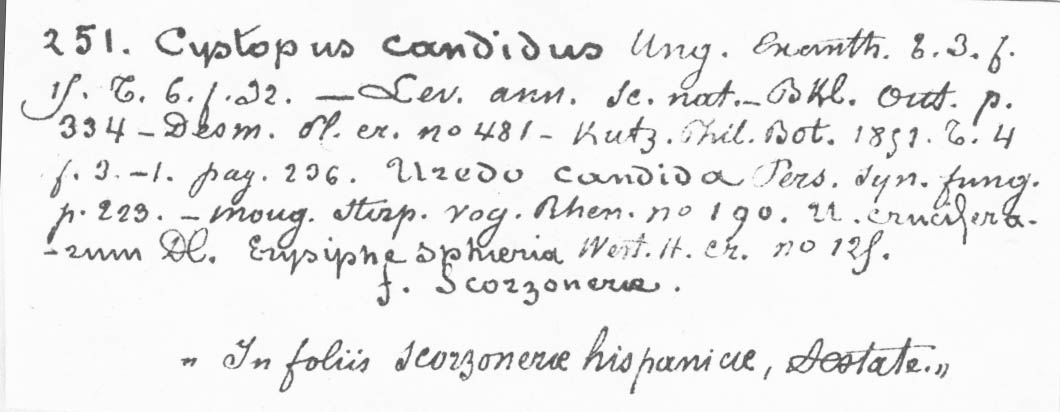 251. Cystopus candidus Ung. Exanth. t. 3. f.
15. T. 6. f. 32. — Lev. ann. sc. nat. – Bkl. Out. p.
334 – Desm. pl. cr. no 481 – Kutz. Phil. Bot. 1851. T. 4
f. 3. –1. pag. 236. Uredo candida Pers. Syn. fung.
p. 223. – Moug. Stirp. vog. Rhen. no 190. U. crucifera-
-rum DC. Erysiphe sphæria West. H. cr. no 125.
f. Scorzoneræ.
„ In foliis Scorzoneræ hispanicæ, Aestate. „